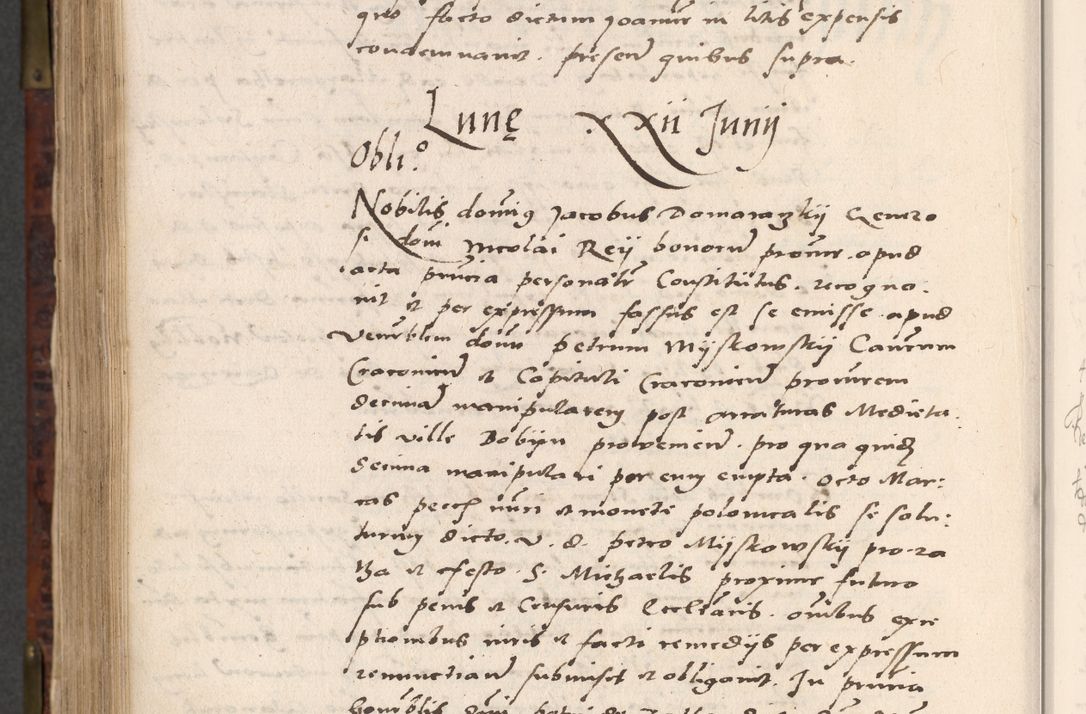 quo facto dictum Joannem in litis expensis
condemnavit. presen͂ quibus supra.
Lunę xxii Junij
Obli.º
Nobilis domin9 Jacobus Domarazkij Genero
si dom̃ Nicolai Reij bonorum procur. apud
acta pñtia personalr̃ Constitutus. recogno:
uit et per expressum fassus est se emisse apud
Venerblem domm petrum Mijskowskij Cantum
Craconien͂ et Capituli Craconien͂ procurem
decimã manipularem post araturas Medieta:
tis ville Bobijn provenien͂. pro qua quidẽ
decima manipulari per eum empta. octo Mar:
cas pecc̃ num̃ et monete polonicalis se solu:
turum dicto. v. d. petro Mijskowskij pro-ra
tha et festo. S. Michaelis proxime futuro
sub penis et Censuris Eccl̃iacis. om̃ibus exce
ptionibus iuris et facti remedijs per expressum
renunctian͂ submisit et obligavit. In pñtia